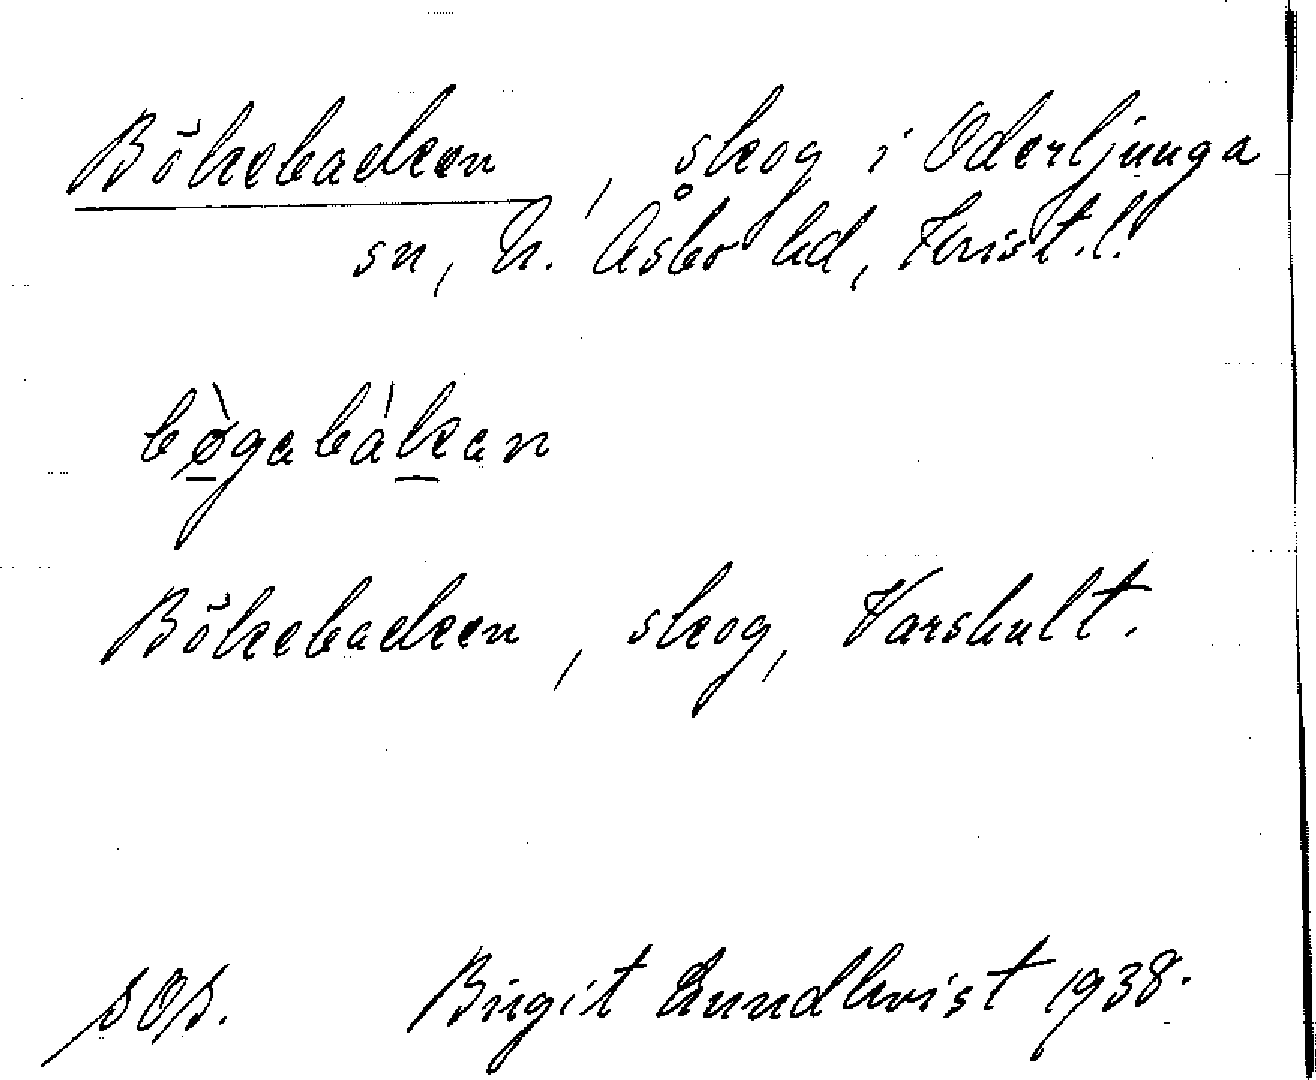 Bökebacken, skog i Oderljunga
sn, N. Åsbo hd, Krist. l.
bø̀gabàkan
Bökebacken, skog, Varshult.
SOS. Birgit Lundkvist 1938.